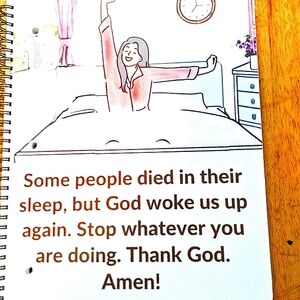 Some people died in their
sleep, but God woke us up
again. Stop whatever you
are doing. Thank God.
Amen!